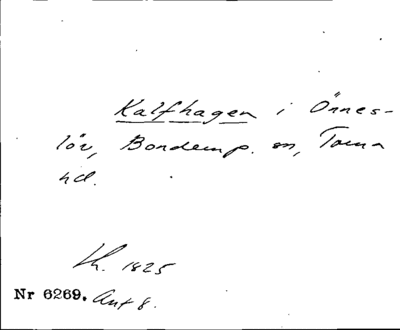 Kalfhagen i Önnes-
löv, Bonderup. sn, Torna
hd.
Lh. 1825
Nr 6269. Ant 8.